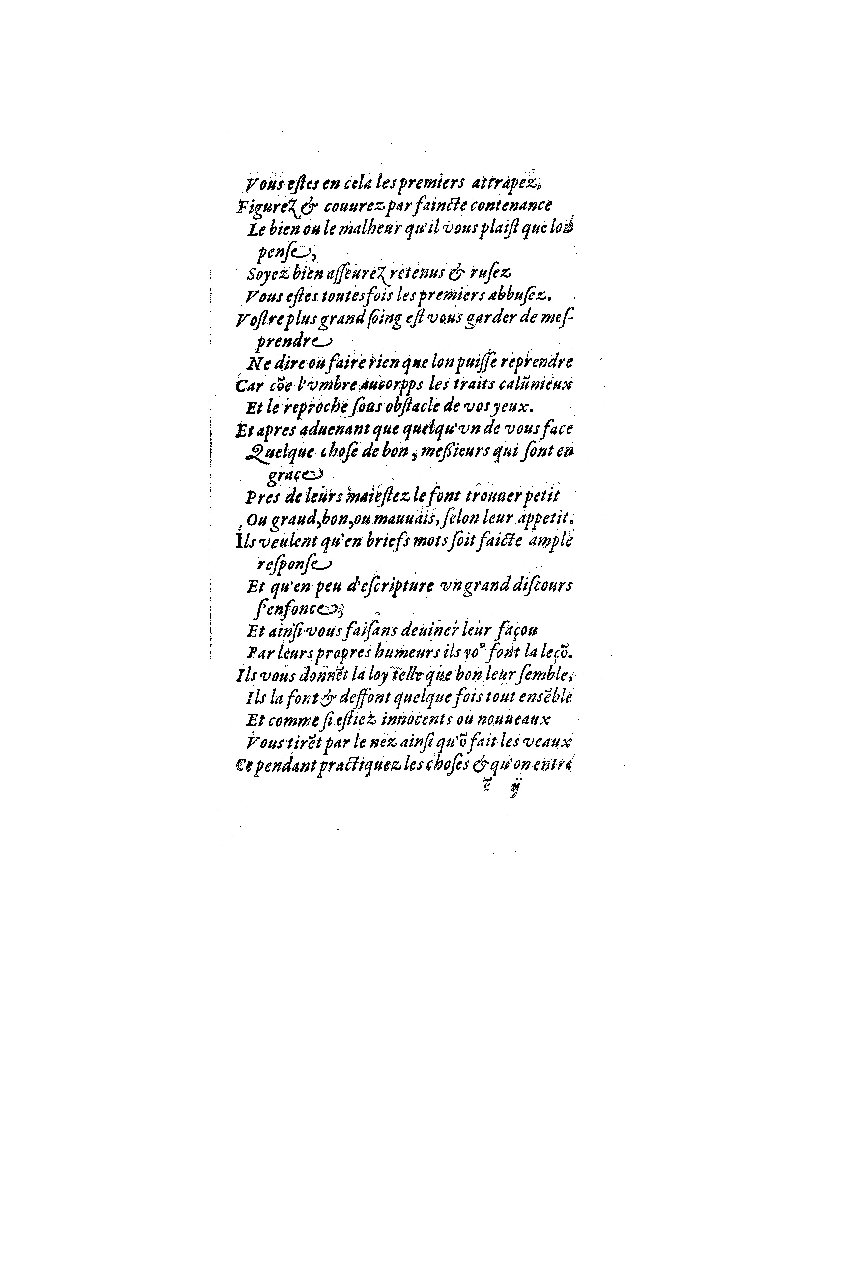 Vous eſtes en cela les premiers attrapez,
Figurez & couurez par faincte contenance
Le bien ou le malheur qu'il vous plaiſt que lon
penſe,
Soyez bien aſſeurez retenus & ruſez
Vous eſtes toutesfois les premiers abbuſez.
Voſtre plus grand ſoing eſt vous garder de meſ-
prendre
Ne dire ou faire rien que lon puiſſe reprendre
Car cõe l'vmbre au corpps les traits calũnieux
Et le reproche ſons obſtacle de vos yeux.
Et apres aduenant que quelqu'vn de vous face
Quelque choſe de bon, meſſieurs qui ſont en
grace
Pres de leurs maieſtez le font trouuer petit
Ou graud, bon, ou mauuais, ſelon leur appetit.
Ils veulent qu'en briefs mots ſoit faicte ample
reſponſe
Et qu'en peu d'eſcripture vn grand diſcours
ſ'enfonce
Et ainſi vous faiſans deuiner leur façou
Par leurs propres humeurs ils voꝰ font la leçõ.
Ils vous donnẽt la loy telle que bon leur ſemble,
Ils la font & deffont quelque fois tout enſẽble
Et comme ſi eſtiez innocents ou nouueaux
Vous tirẽt par le nez ainſi qu'õ fait les veaux
Ce pendant practiquez les choſes & qu'on entre
ẽ ij